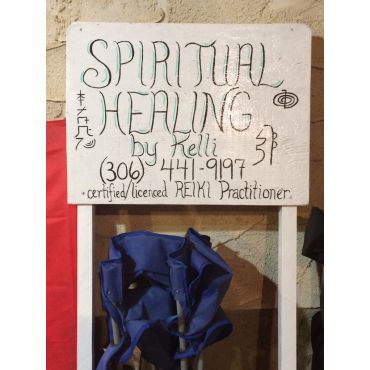 SPIRITUAL
HEALING
by Kelli
(306) 441-9197
certified/licenced REIKI Practitioner